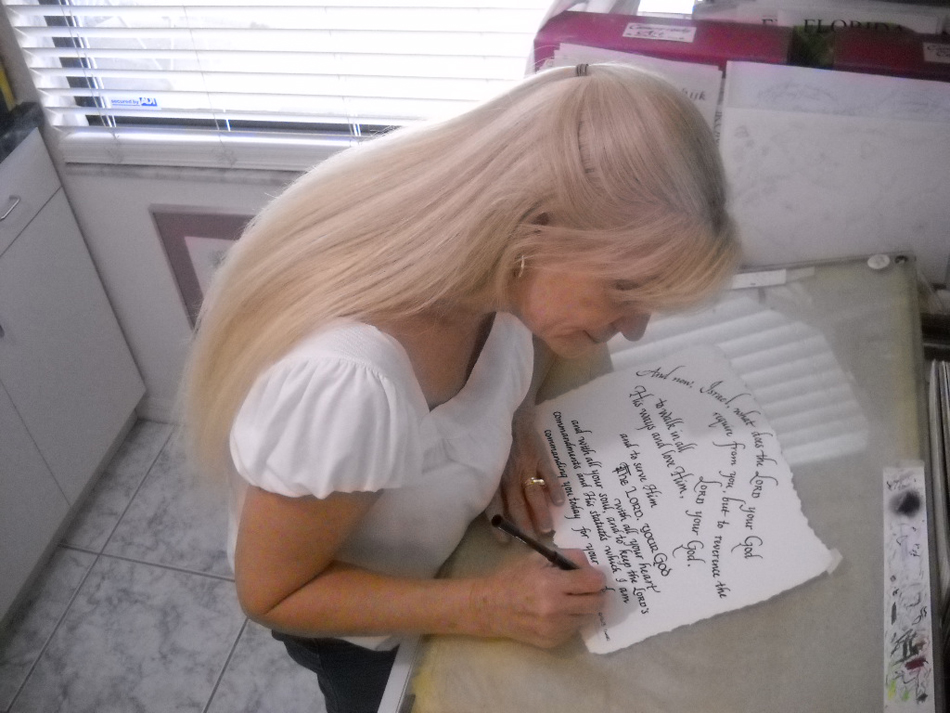 secured by ADT
FLORIDA
And now, Israel, what does the LORD your God
require from you, but to reverence the
LORD your God.
to walk in all
His ways and love Him,
and to serve Him
The LORD, your God
with all your heart
and with all your soul, and to keep the LORD's
commandments and His statutes which I am
commanding you today for your